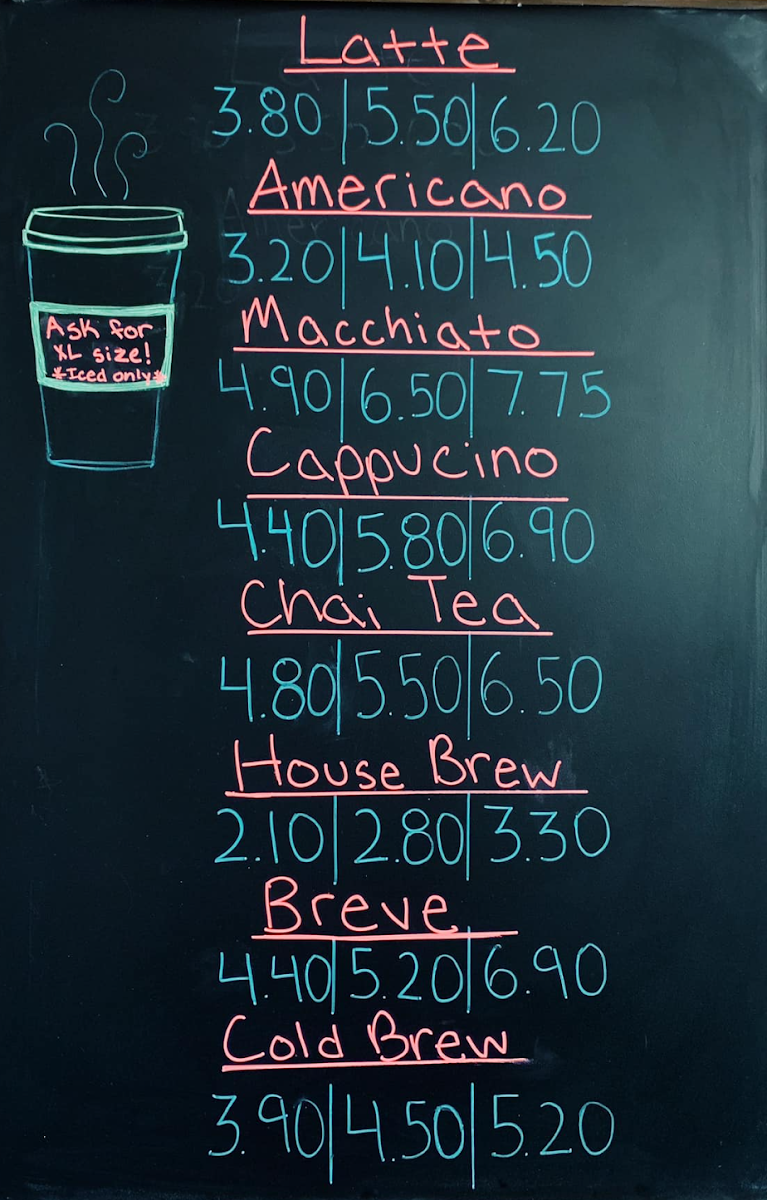 Latte
3.80 | 5.50 | 6.20
Americano
3.20 | 4.10 | 4.50
Ask for
XL size!
*Iced only*
Macchiato
4.90 | 6.50 | 7.75
Cappucino
4.40 | 5.80 | 6.90
Chai Tea
4.80 | 5.50 | 6.50
House Brew
2.10 | 2.80 | 3.30
Breve
4.40 | 5.20 | 6.90
Cold Brew
3.90 | 4.50 | 5.20